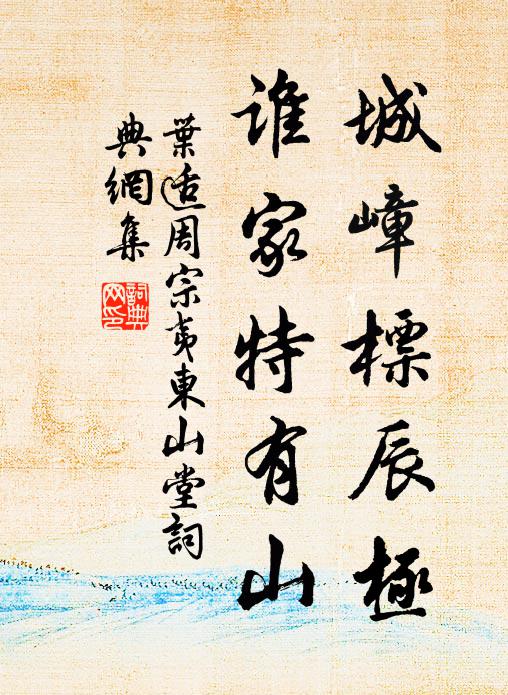 城嶂標辰極
誰家特有山
葉適周宗夷東山堂詞
典網集
詞典
网印